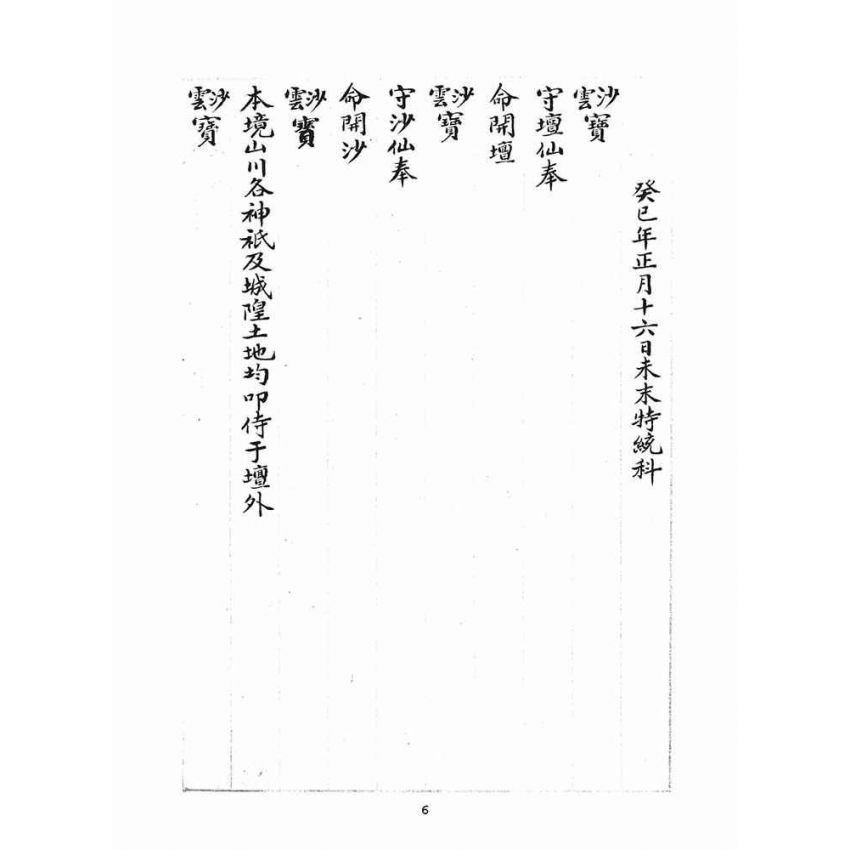 癸巳年正月十六日未末特統科
寶沙雲
守壇仙奉
命開壇
寶沙雲
守沙仙奉
命開沙
寶沙雲
本境山川各神祇及城隍土地均叩侍于壇外
寶沙雲
6